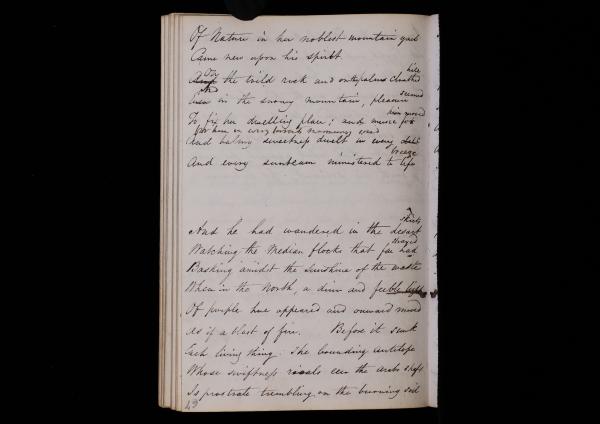 Of Nature in her noblest mountain garb
Came new upon his spirit.
On the wild rock and on the palm clad hill
And in the snowy mountain, pleasure seemed
To fix her dwelling place; and music for him moved
for him in every bird's morning
And balmy sweetness dwelt in every breeze
And every sunbeam ministered to life
And he had wandered in the desart skirts
Watching the Median flocks that far had strayed
Basking amidst the sunshine of the waste
When in the North, a dim and feeble light
Of purple hue appeared and onward moved
As if a blast of fire. Before it sunk
Each living thing. The bounding antelope
Whose swiftness rivals een the arabs shaft
Is prostrate trembling on the burning soil
49